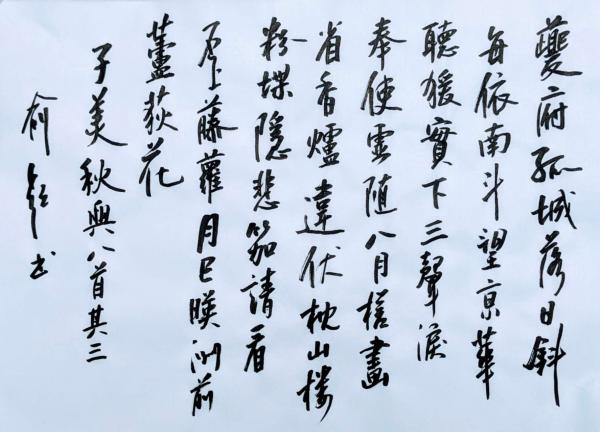 夔府孤城落日斜
每依南斗望京華
聽猨實下三聲淚
奉使虛隨八月槎畫
省香爐違伏枕山樓
粉堞隱悲笳請看
石上藤蘿月已映洲前
蘆荻花
子美秋興八首其三
俞 書